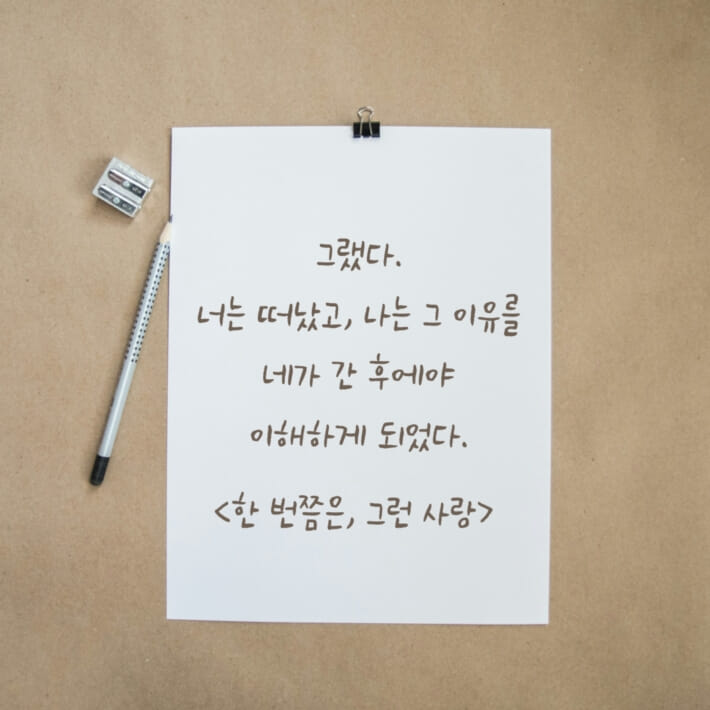 그랬다.
너는 떠났고, 나는 그 이유를
네가 간 후에야
이해하게 되었다.
<한 번쯤은, 그런 사랑>